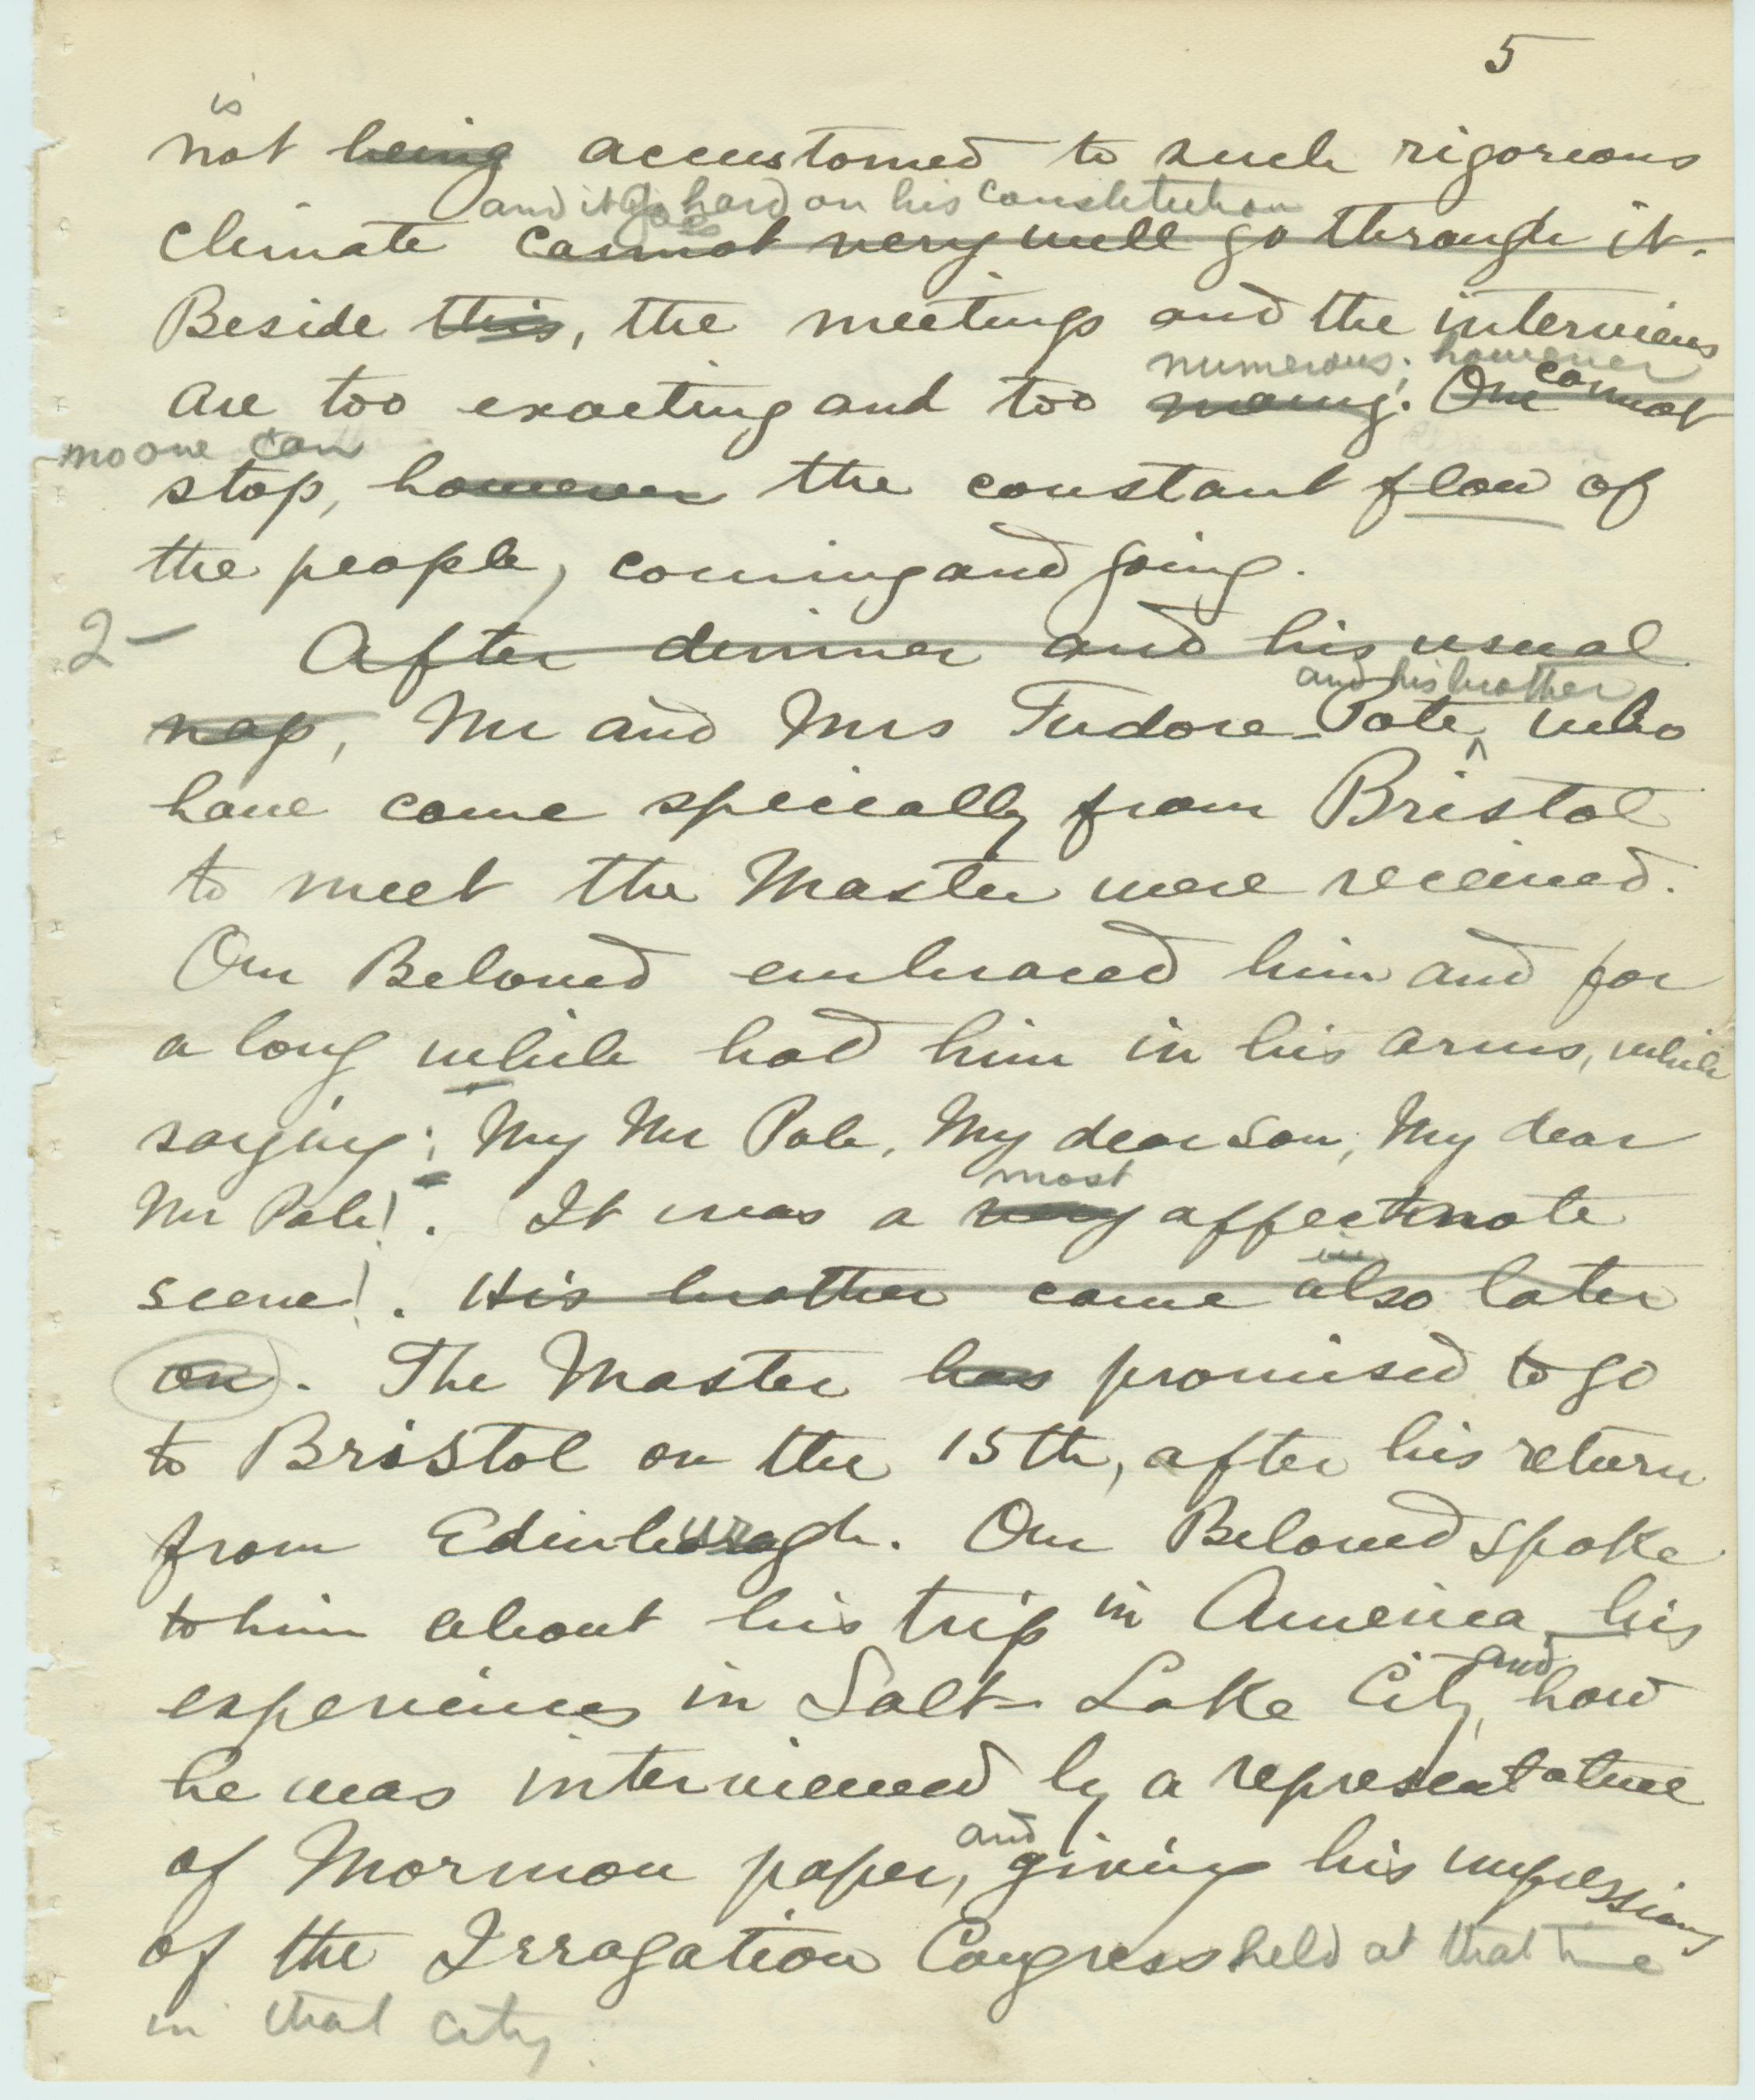 5
is
not being accustomed to such rigorious
and it goes hard on his constitution
climate cannot very well go through it.
Beside this, the meetings and the interviews
numerous; however
are too exacting and too many. One cannot
no one can
stop, however the constant flow of
the people, coming and going.
2- After dinner and his usual
and his brother
nap, Mr and Mrs Tudore-Pole, who
have come specially from Bristol
to meet the Master were received.
Our Beloved embraced him and for
a long while had him in his arms, while
saying: My Mr Pole, My dear son, My dear
most
Mr Pole!. It was a very affectinate
scene!. His brother came also later
on. The Master has promised to go
to Bristol on the 15th, after his return
from Edinburagh. Our Beloved spoke
to him about his trip in America, his
and
experiences in Salt-Lake City, how
he was interviewed by a representative
and
of Mormon paper, giving his impressions
of the Irragation Congress held at that time
in that city.